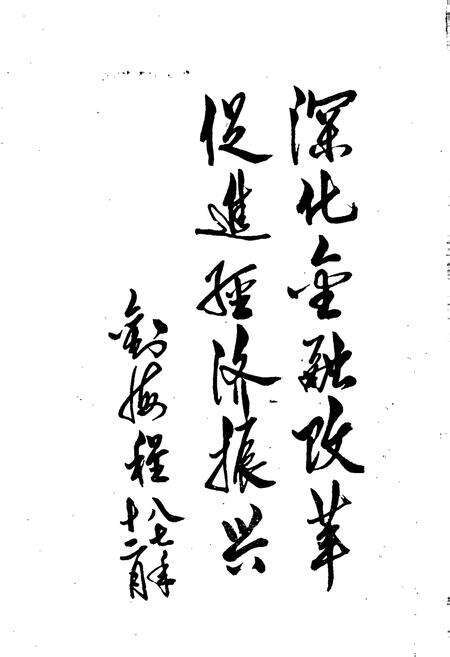 深化金融改革
促進經济振兴
劉梅程
八七年
十二月